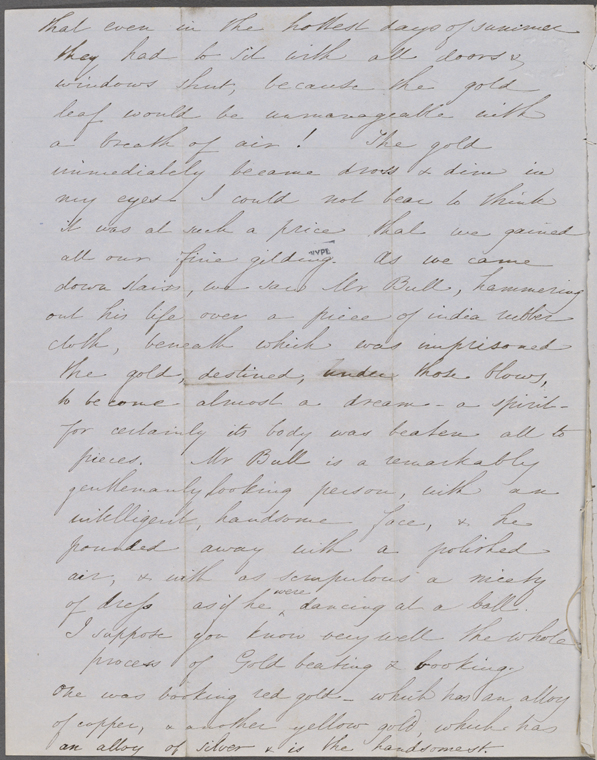 that even in the hottest days of summer
they had to sit with all doors &
windows shut, because the gold
leaf would be unmanageable with
a breath of air! The gold
immediately became dross & dim in
my eyes. I could not bear to think
it was at such a price that we gained
all our fine gilding. As we came
down stairs, we saw Mr Bull, hammering
out his life over a piece of india rubber
cloth, beneath which was imprisoned
the gold, destined, under those blows,
to become almost a dream - a spirit -
for certainly its body was beaten all to
pieces. Mr Bull is a remarkably
gentlemanly looking person, with an
intelligent, handsome face, & he
pounded away with a polished
air, & with as scrupulous a nicety
of dress as if he were dancing at a ball.
I suppose you know very well the whole
process of Gold beating & booking.
One was booking red gold - which has an alloy
of copper, & another yellow gold, which has
an alloy of silver & is the handsomest.